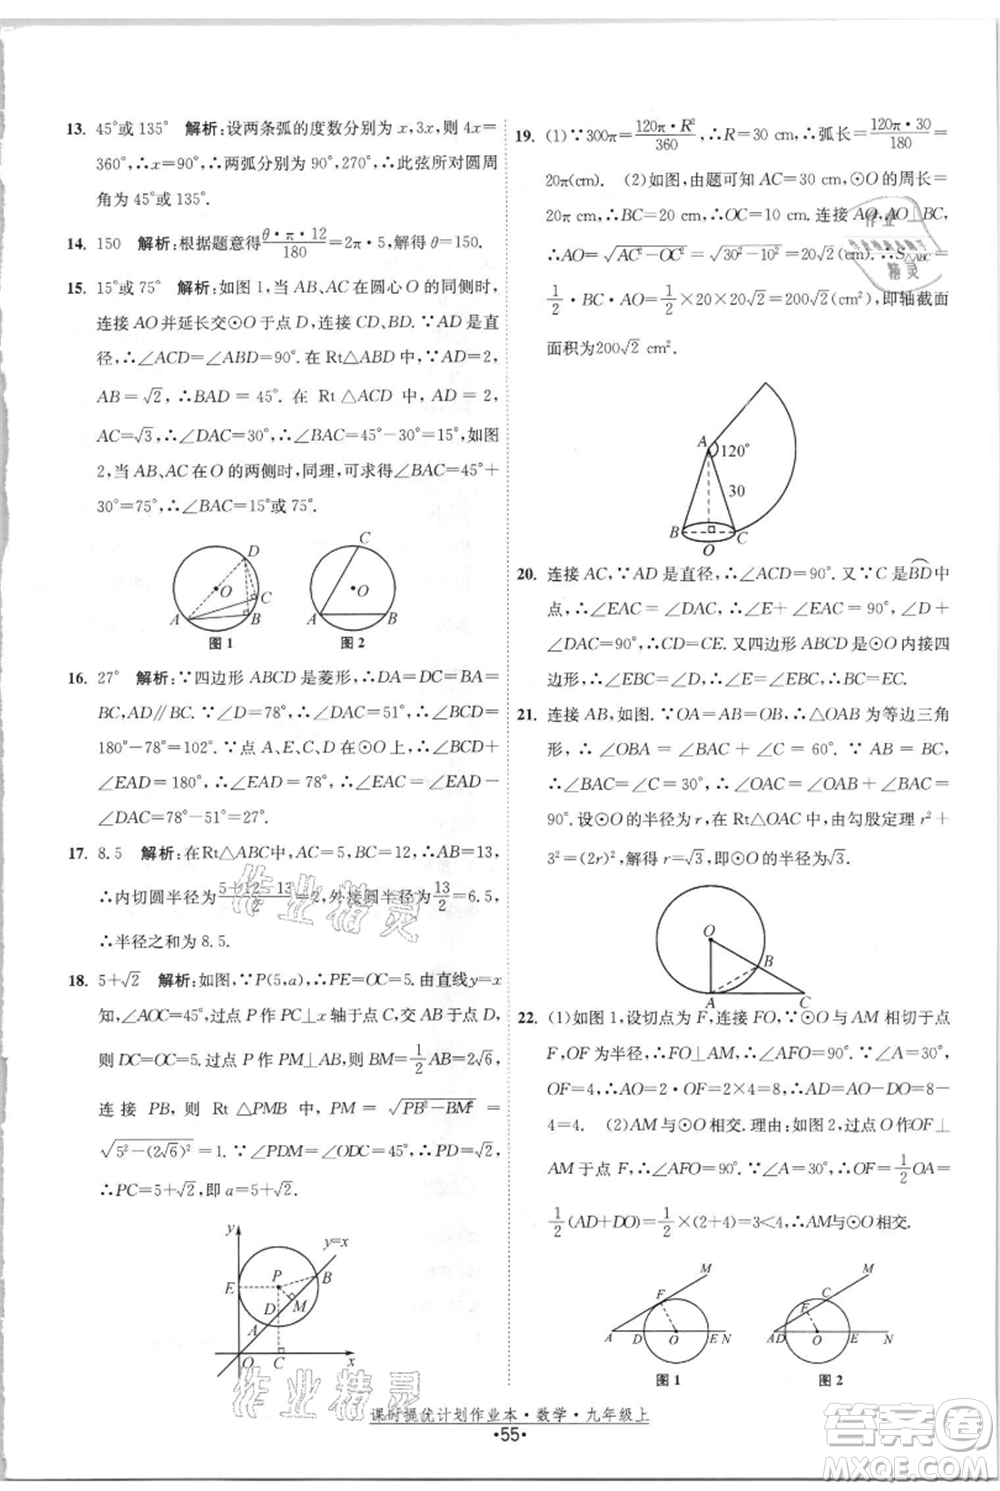 13. 45°或135° 解析:设两条弧的度数分别为 x,3x,则 4x=
360°,∴x=90°,∴两弧分别为 90°,270°,∴此弦所对圆周
角为 45°或135°.
14. 150 解析:根据题意得 θ·π·12/180=2π·5,解得 θ=150.
15. 15°或 75° 解析:如图 1,当 AB、AC 在圆心 O 的同侧时,
连接 AO 并延长交⊙O 于点 D,连接 CD、BD.∵AD 是直
径,∴∠ACD=∠ABD=90°. 在 Rt△ABD 中,AD=2,
AB=√2,∴∠BAD=45°. 在 Rt△ACD 中,AD=2,
AC=√3,∴∠DAC=30°,∴∠BAC=45°-30°=15°,如图
2,当 AB、AC 在 O 的两侧时,同理,可求得∠BAC=45°+
30°=75°,∴∠BAC=15°或 75°.
D
O
C
A
B
图 1
C
O
A
B
图 2
16. 27° 解析:∵四边形 ABCD 是菱形,∴DA=DC=BA=
BC,AD∥BC.∵∠D=78°,∴∠DAC=51°,∴∠BCD=
180°-78°=102°.∵点 A、E、C、D 在⊙O 上,∴∠BCD+
∠EAD=180°,∴∠EAD=78°,∴∠BAC=∠EAD-
∠DAC=78°-51°=27°.
17. 8.5 解析:在Rt△ABC中,AC=5,BC=12,∴AB=13,
∴内切圆半径为 (5+12-13)/2=2,外接圆半径为 13/2=6.5,
∴半径之和为 8.5.
18. 5+√2 解析:如图,∵P(5,a),∴PE=OC=5.由直线y=x
知,∠AOC=45°,过点 P 作 PC⊥x 轴于点 C,交 AB 于点 D,
则 DC=OC=5,过点 P 作 PM⊥AB,则 BM=1/2AB=2√6,
连接 PB,则 Rt△PMB 中,PM=√(PB²-BM²)=
√(5²-(2√6)²)=1.∵∠PDM=∠ODC=45°,∴PD=√2,
∴PC=5+√2,即 a=5+√2.
y
y=x
P
B
E
D
M
A
O
C
x
19. (1)∵300π=120π·R²/360,∴R=30 cm,∴弧长=120π·30/180=
20π(cm). (2)如图,由题可知 AC=30 cm,⊙O 的周长为
20π cm,∴BC=20 cm,∴OC=10 cm.连接 AO,AO⊥BC,
∴AO=√(AC²-OC²)=√(30²-10²)=20√2(cm).∴S△ABC=
1/2·BC·AO=1/2×20×20√2=200√2(cm²),即轴截面
面积为200√2 cm².
A
120°
30
B
O
C
20. 连接 AC,∵AD 是直径,∴∠ACD=90°. 又∵C 是BD中
点,∴∠EAC=∠DAC,∴∠E+∠EAC=∠D+
∠DAC=90°,∴∠E=∠D,∴CD=CE.又四边形 ABCD 是⊙O 内接四
边形,∴∠EBC=∠D,∴∠E=∠EBC,∴BC=EC.
21. 连接 AB,如图.∵OA=AB=OB,∴△OAB 为等边三角
形,∴∠OBA=∠BAC+∠C=60°.∵AB=BC,
∴∠BAC=∠C=30°,∴∠OAC=∠OAB+∠BAC=
90°.设⊙O 的半径为 r,在 Rt△OAC 中,由勾股定理 r²+
3²=(2r)²,解得 r=√3,即⊙O 的半径为√3.
O
B
A
C
22. (1)如图 1,设切点为 F,连接 FO,∵⊙O 与 AM 相切于点
F,OF 为半径,∴FO⊥AM,∴∠AFO=90°.∵∠A=30°,
OF=4,∴AO=2·OF=2×4=8,∴AD=AO-DO=8-
4=4. (2)AM 与⊙O 相交.理由:如图 2,过点 O 作 OF⊥
AM 于点 F,∴∠AFO=90°.∵∠A=30°,∴OF=1/2OA=
1/2(AD+DO)=1/2×(2+4)=3<4,∴AM与⊙O 相交.
M
F
A
D
O
E
N
图 1
M
C
F
A
D
O
E
N
图 2
课时提优计划作业本·数学·九年级上
·55·
作业精灵
作业精灵
作业
精灵
答案圈
MXQE.COM